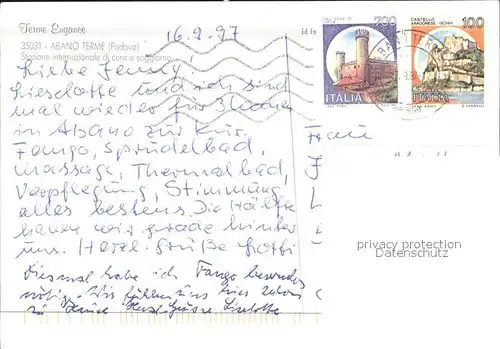 Terme Euganee
35031 - ABANO TERME (Padova)
Stazione internazionale di cura e soggiorno
16.9.97
Liebe Jenny!
Lieselotte und ich sind
mal wieder für 3 Wochen
in Abano zur Kur.
Fango, Sprudelbad,
Massage, Thermalbad,
Verpflegung, Stimmung,
alles bestens. Die Hälfte
haben wir grade hinter
uns. Herzl. Grüße
Diesmal habe ich Fango besonders
nötig. Wir fühlen uns hier schon
zu Hause Herzl. Grüsse Liselotte
200
ITALIA
CASTELLO
ARAGONESE - ISCHIA
100
ITALIA
Frau
privacy protection
Datenschutz